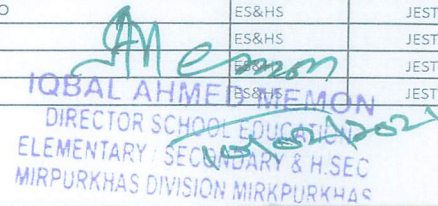 O ES&HS JEST
ES&HS JEST
ES&HS JEST
ES&HS JEST
Memon
IQBAL AHMED MEMON
DIRECTOR SCHOOL EDUCATION
ELEMENTARY, SECONDARY & H.SEC
MIRPURKHAS DIVISION MIRKPURKHAS